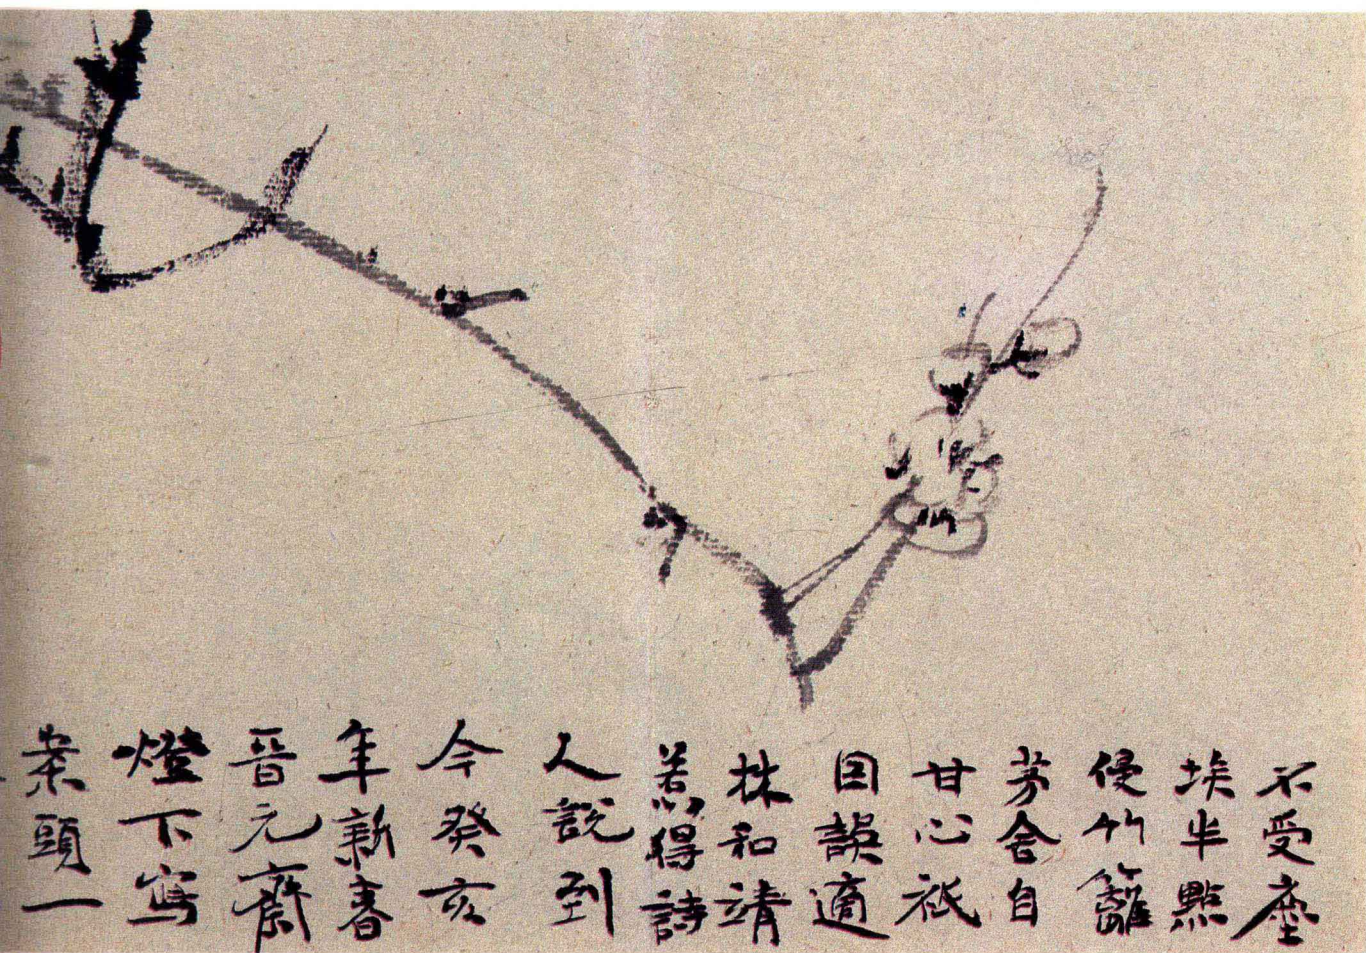 不受塵
埃半點
侵竹籬
茅舍自
甘心祇
因誤適
林和靖
惹得詩
人說到
今癸亥
年新春
晉元齋
燈下寫
案頭一